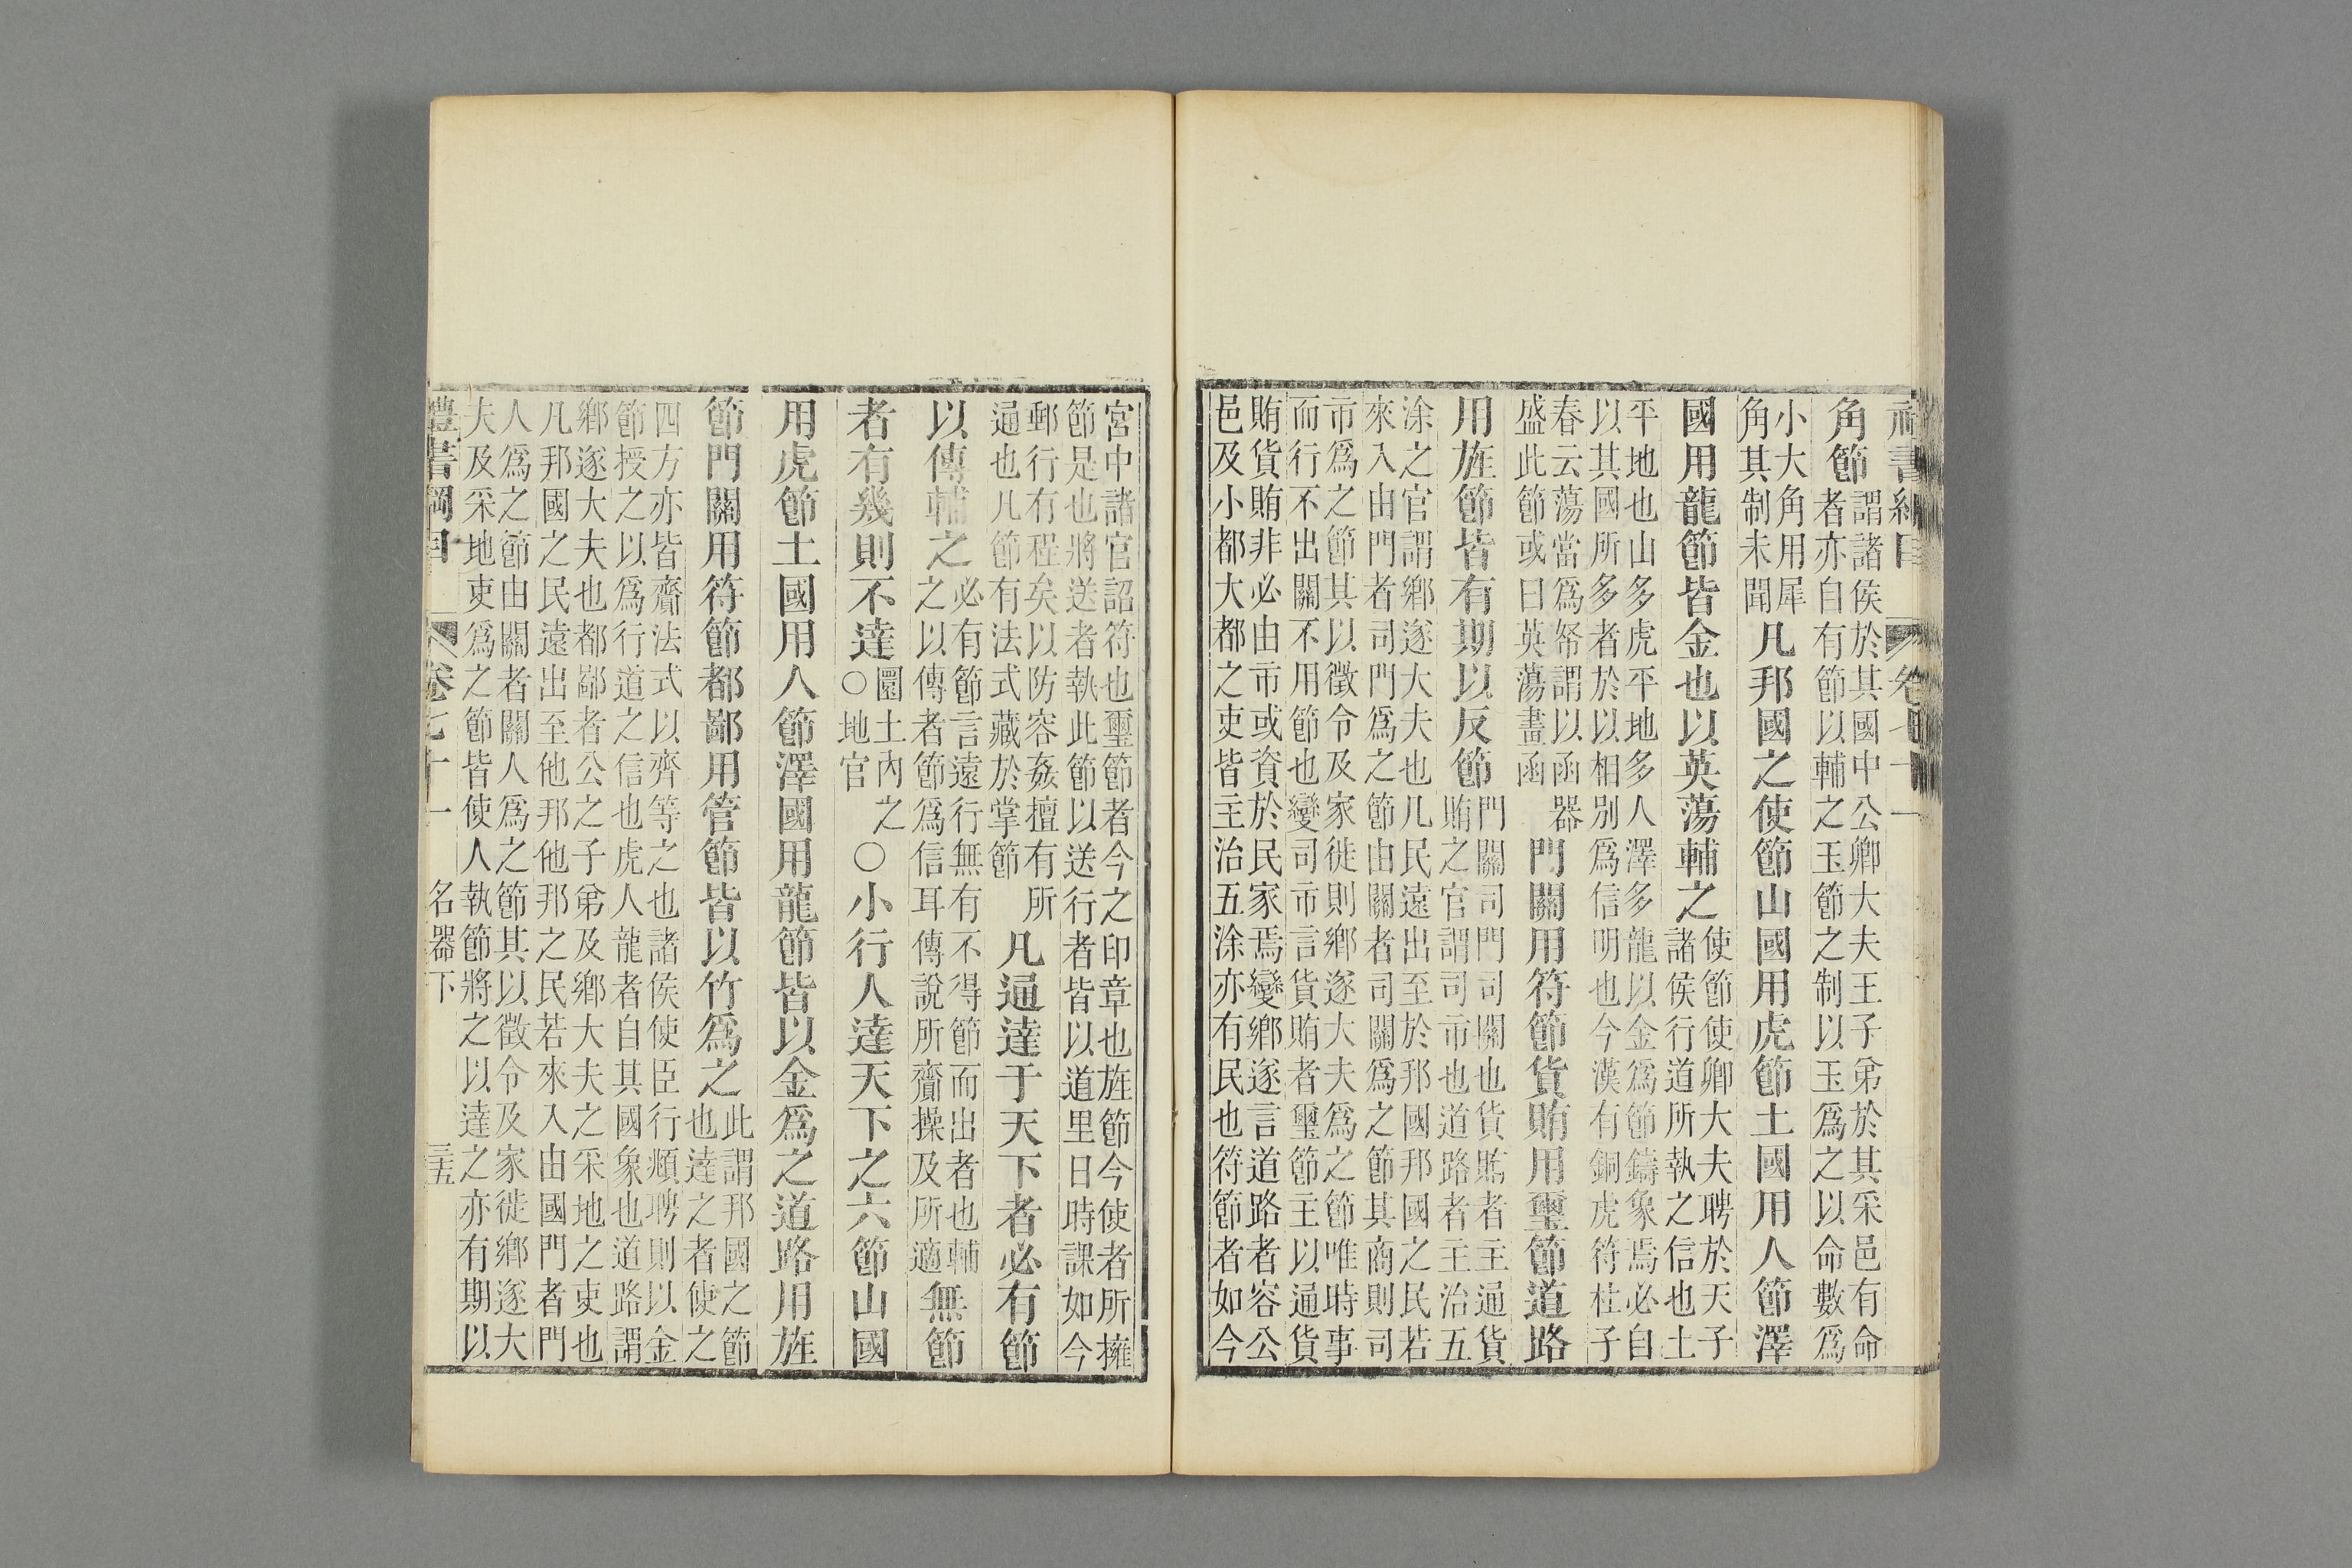 禮書綱目　卷七十一
角節謂諸侯於其國中公卿大夫王子弟於其采邑有命
者亦自有節以輔之玉節之制以玉爲之以命數爲
小大角用犀
角其制未聞凡邦國之使節山國用虎節土國用人節澤
國用龍節皆金也以英蕩輔之使節使卿大夫聘於天子
諸侯行道所執之信也土
平地也山多虎平地多人澤多龍以金爲節鑄象焉必自
以其國所多者於以相別爲信明也今漢有銅虎符杜子
春云蕩當爲帑謂以函器
盛此節或曰英蕩畫函門關用符節貨賄用璽節道路
用旌節皆有期以反節門關司門司關也貨賄者主通貨
賄之官謂司市也道路者主治五
涂之官謂鄉遂大夫也凡民遠出至於邦國邦國之民若
來入由門者司門爲之節由關者司關爲之節其商則司
市爲之節其以徵令及家徙則鄉遂大夫爲之節唯時事
而行不出關不用節也變司市言貨賄者璽節主以通貨
賄貨賄非必由市或資於民家焉變鄉遂言道路者容公
邑及小都大都之吏皆主治五涂亦有民也符節者如今
宮中諸官詔符也璽節者今之印章也旌節今使者所擁
節是也將送者執此節以送行者皆以道里日時課如今
郵行有程矣以防容姦擅有所
通也凡節有法式藏於掌節凡通達于天下者必有節
以傳輔之必有節言遠行無有不得節而出者也輔
之以傳者節爲信耳傳說所齎操及所適無節
者有幾則不達圜土內之
○地官○小行人達天下之六節山國
用虎節土國用人節澤國用龍節皆以金爲之道路用旌
節門關用符節都鄙用管節皆以竹爲之此謂邦國之節
也達之者使之
四方亦皆齎法式以齊等之也諸侯使臣行頫聘則以金
節授之以爲行道之信也虎人龍者自其國象也道路謂
鄉遂大夫也都鄙者公之子弟及鄉大夫之采地之吏也
凡邦國之民遠出至他邦他邦之民若來入由國門者門
人爲之節由關者關人爲之節其以徵令及家徙鄉遂大
夫及采地吏爲之節皆使人執節將之以達之亦有期以
禮書綱目　卷七十一　名器下　三五